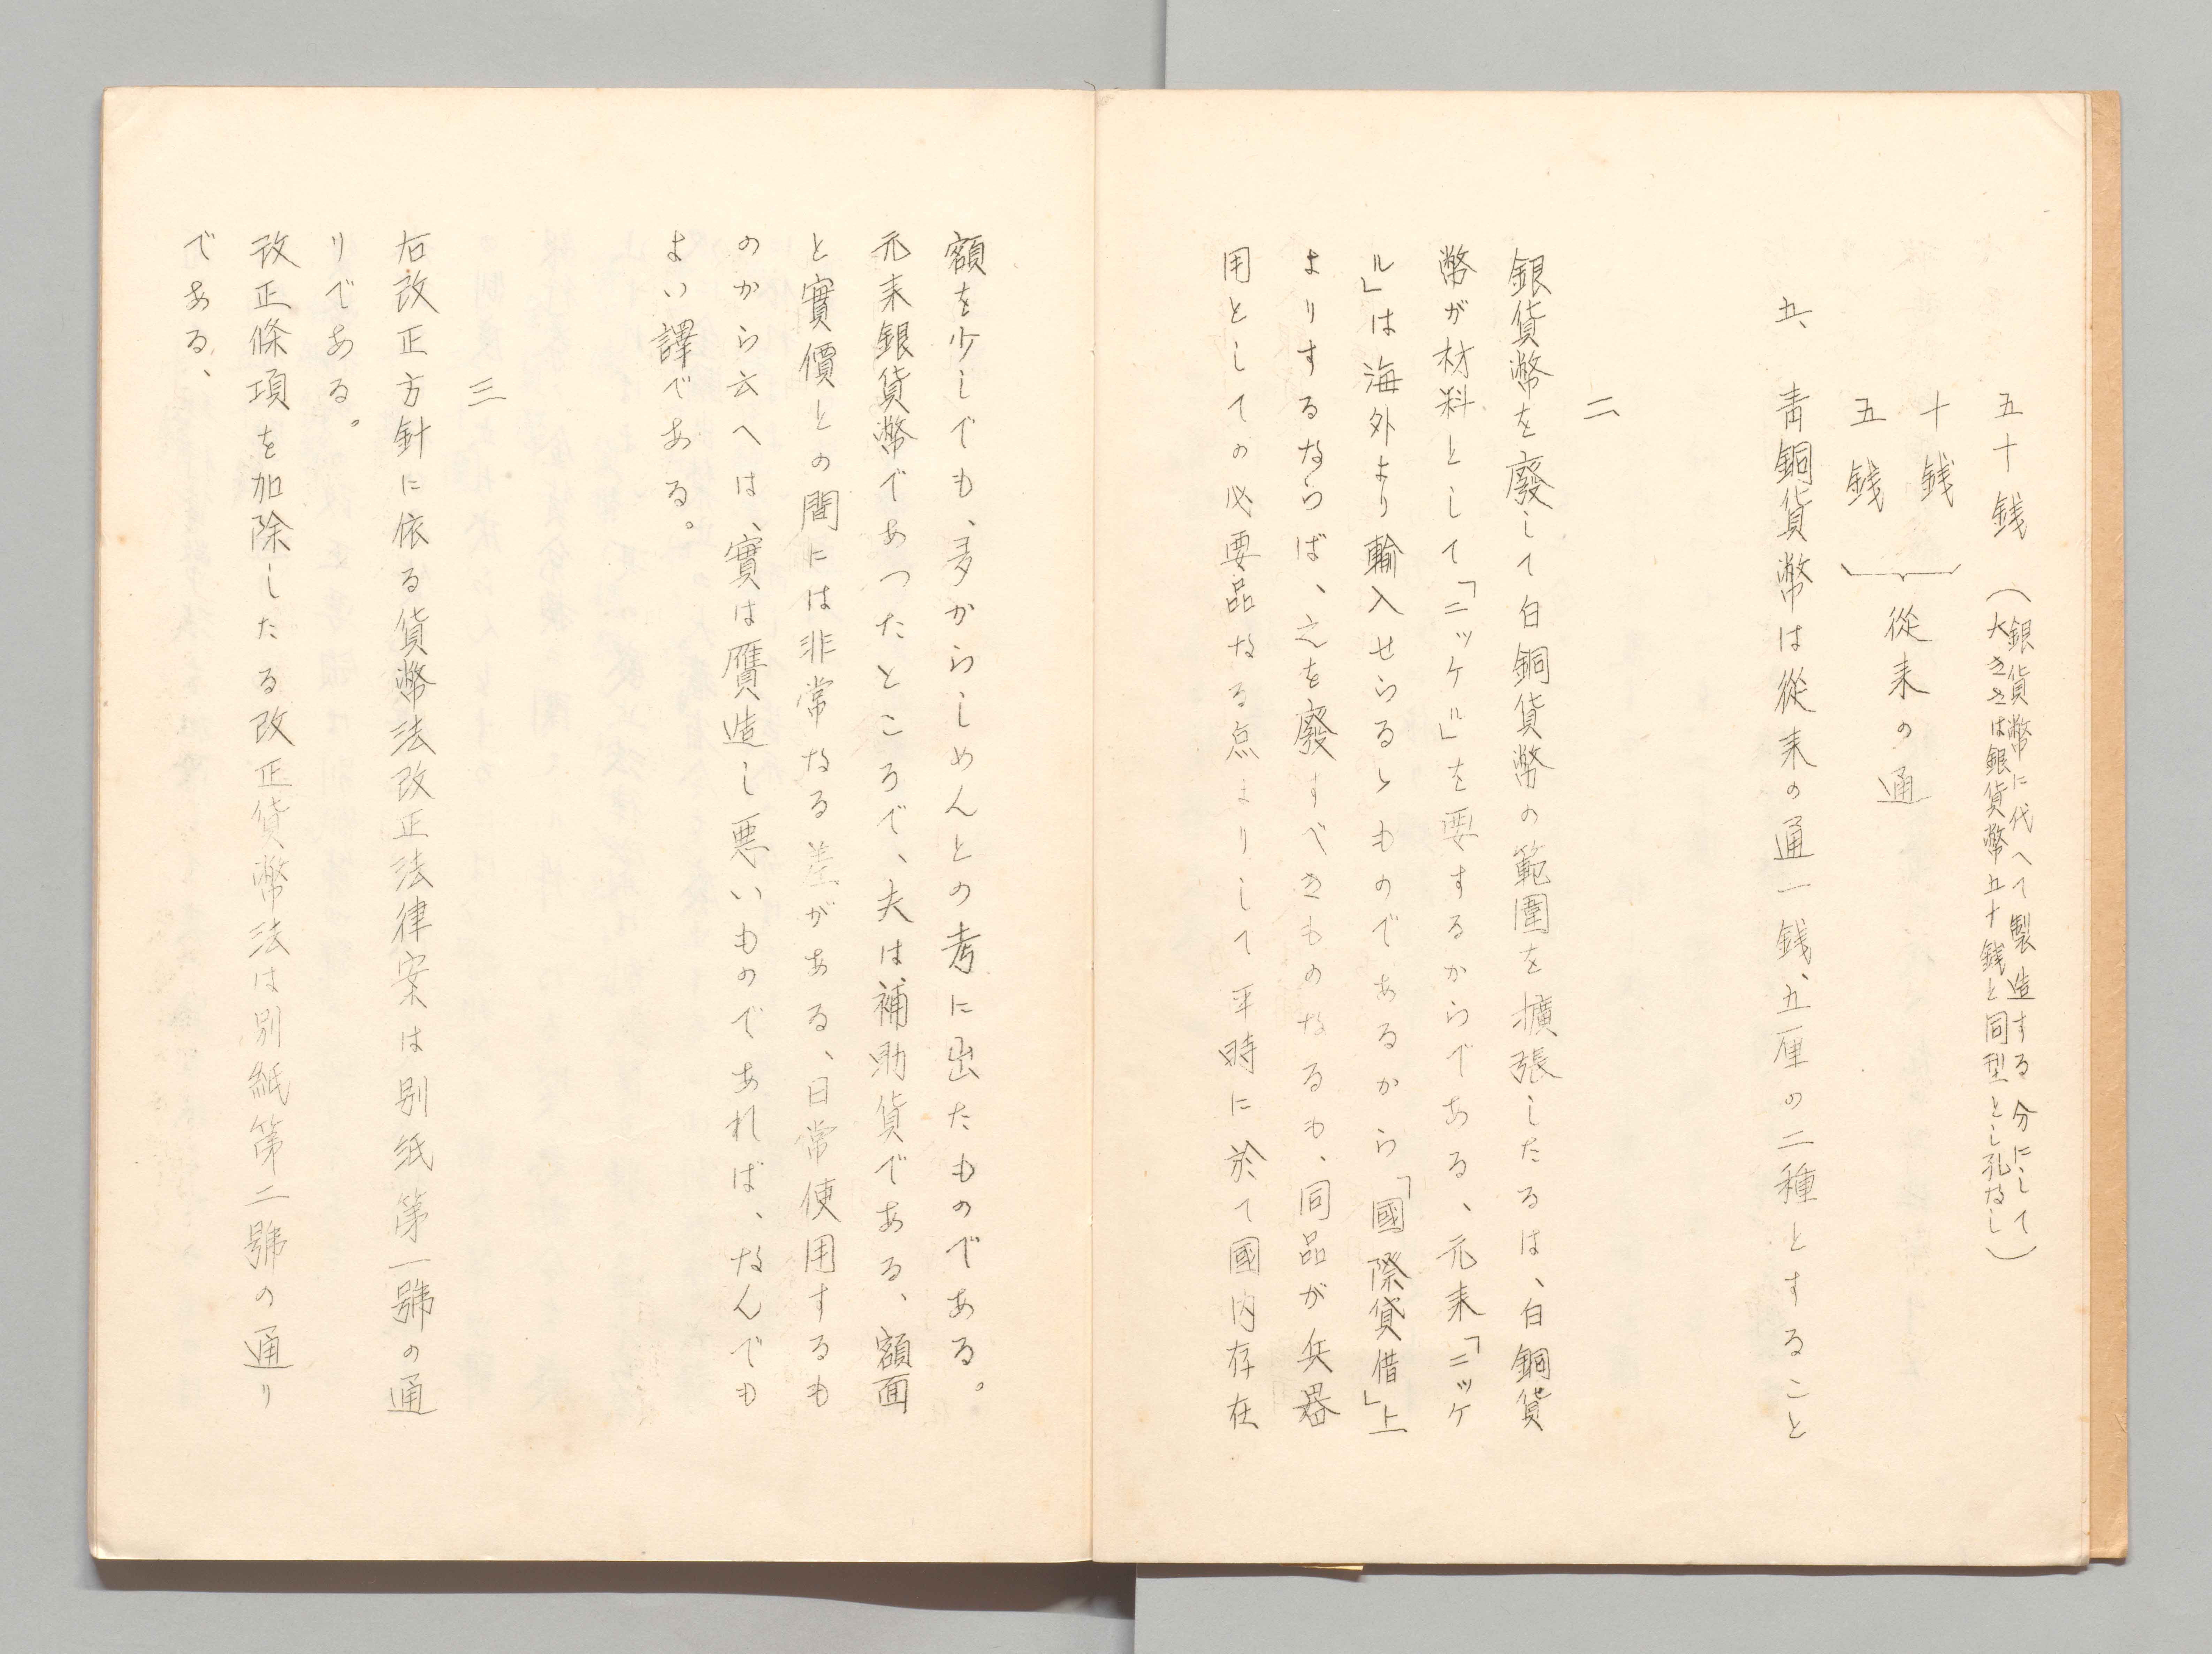 五十銭（銀貨幣に代へて製造する分にして
大きさは銀貨幣五十銭と同型とし孔なし）
十銭
五銭
従来の通
五、青銅貨幣は従来の通一銭、五厘の二種とすること
二
銀貨幣を廢して白銅貨幣の範圍を擴張したるは、白銅貨
幣が材料として「ニッケル」を要するからである、元来「ニッケ
ル」は海外より輸入せらるゝものであるから「國際貸借」上
よりするならば、之を廢すべきものなるも、同品が兵器
用としての必要品なる点よりして平時に於て國内存在
額を少しでも、多からしめんとの考に出たものである。
元来銀貨幣であつたところで、夫は補助貨である、額面
と實價との間には非常なる差がある、日常使用するも
のから云へは、實は贋造し悪いものであれば、なんでも
よい譯である。
三
右改正方針に依る貨幣法改正法律案は別紙第一號の通
りである。
改正條項を加除したる改正貨幣法は別紙第二號の通り
である、